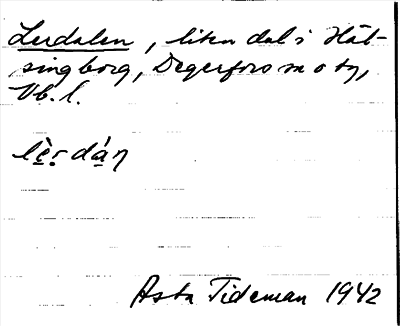 Lerdalen, liten dal i Häl-
singborg, Degerfors sn o tg,
Vb. l.
lè̱ṛdá̱ŋ
Asta Tideman 1942